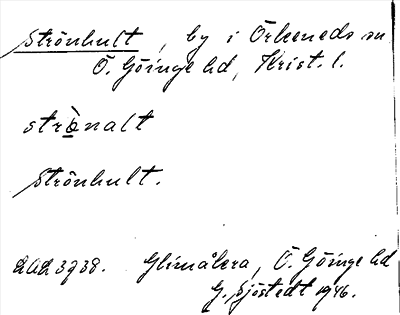 Strönhult, by i Örkeneds sn
Ö. Göinge hd, Krist. l.
strö̀nalt
Strönhult.
LAL 3738. Glimåkra, Ö. Göinge hd
G. Sjöstedt 1946.